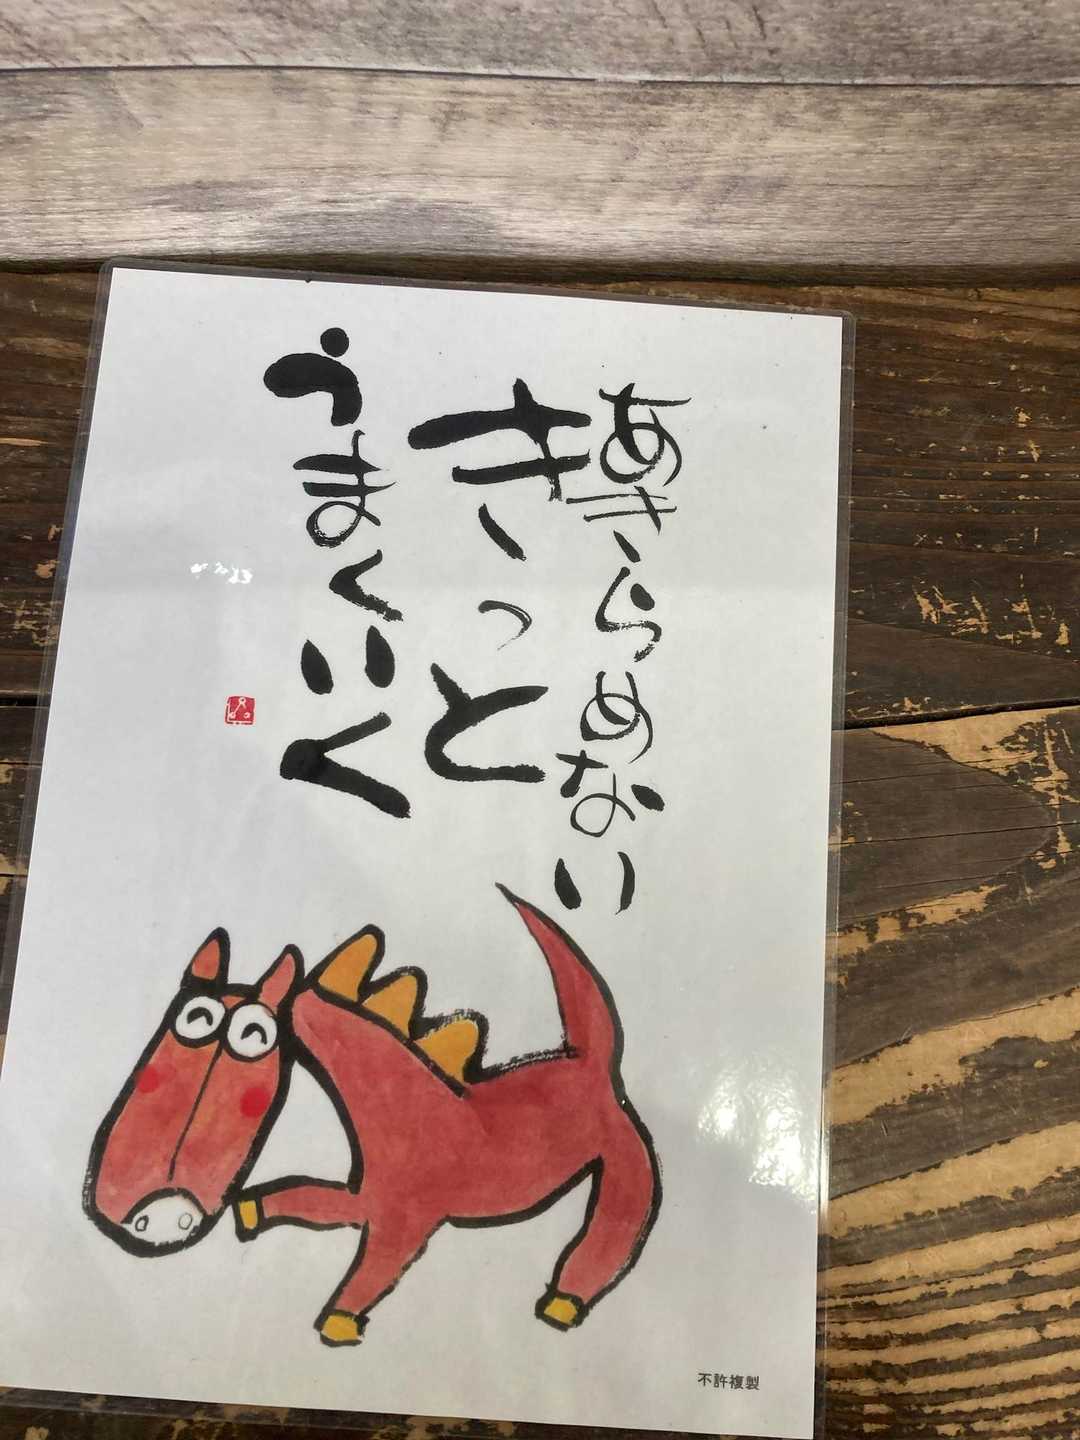 あきらめない
きっと
うまくいく
不許複製